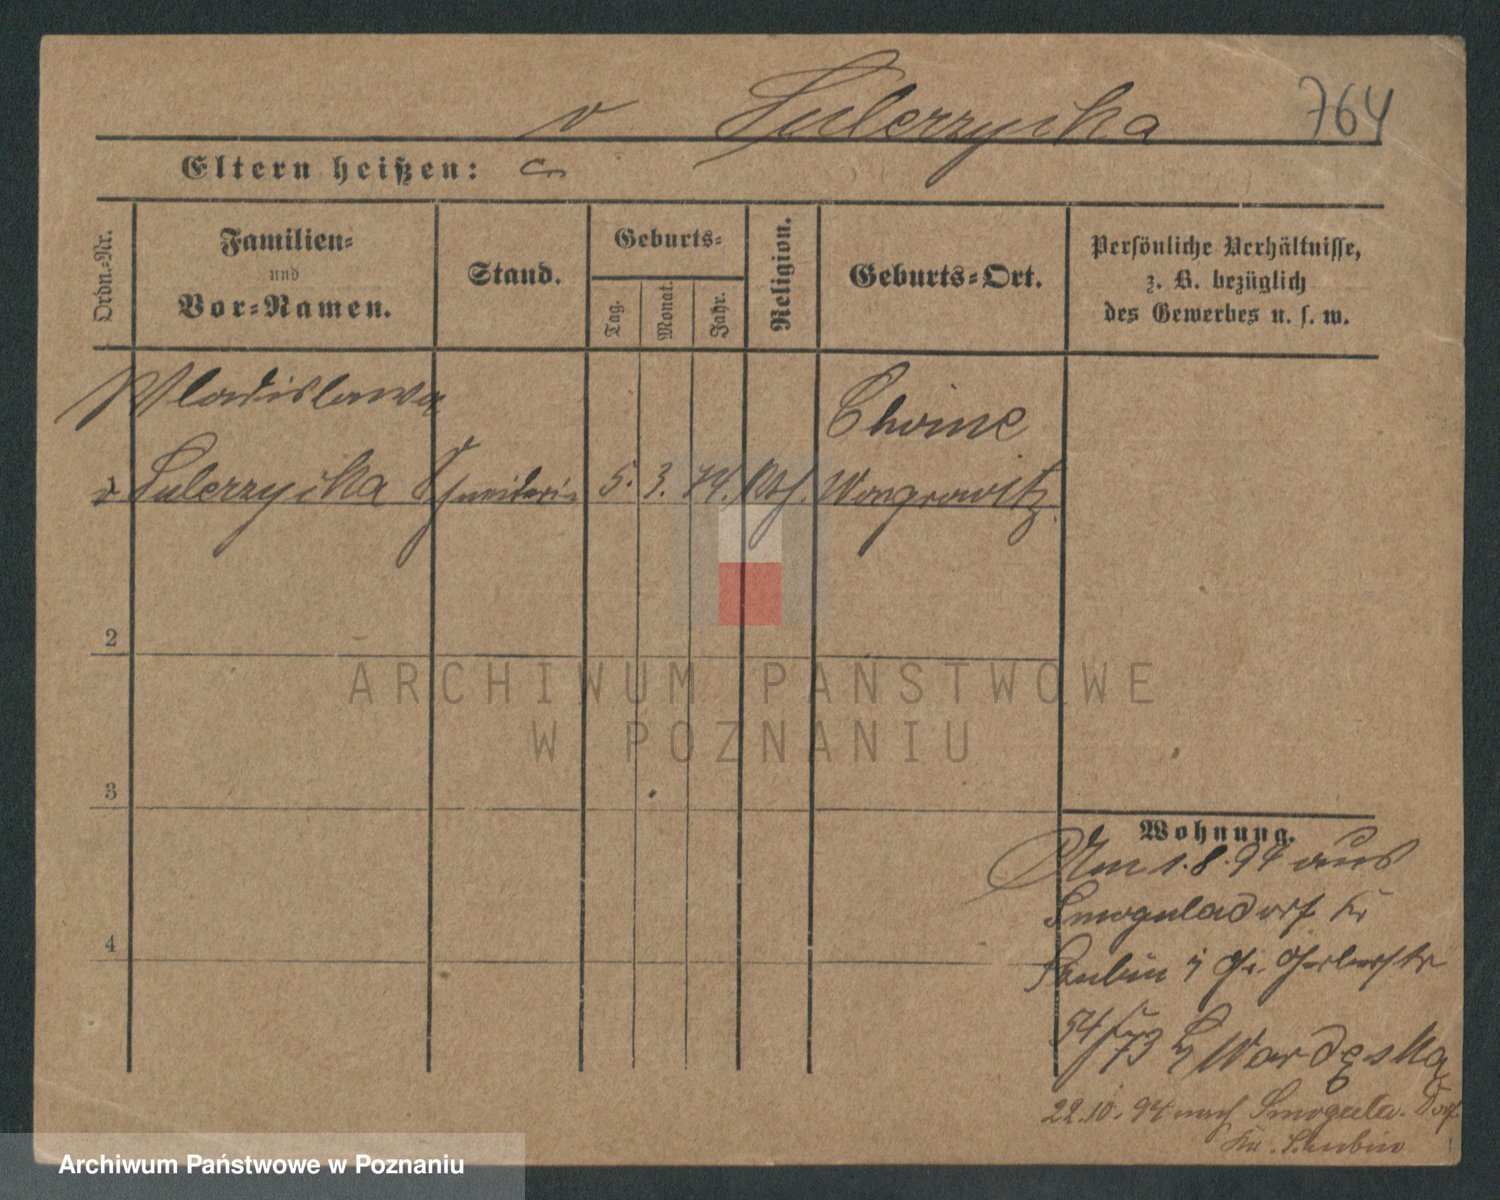 v Sulerzycka 764
Eltern heißen:
Ordn.-Nr.
Familien-
und
Vor-Namen.
Stand.
Geburts-
Tag.
Monat.
Jahr.
Religion.
Geburts-Ort.
Persönliche Verhältnisse,
z. B. bezüglich
des Gewerbes u. s. w.
Wladislawa
v Sulerzycka Schneiderin 5. 3. 74. kth.
Choine
Wongrowitz
2
3
4
Wohnung.
Am 1.8.94 aus
Smoguladorf Kr
Schubin Gerberstr
54 Wardęska
22.10.94 nach Smogula-Dorf
Kr. Schubin
ARCHIWUM PAŃSTWOWE
W POZNANIU
Archiwum Państwowe w Poznaniu